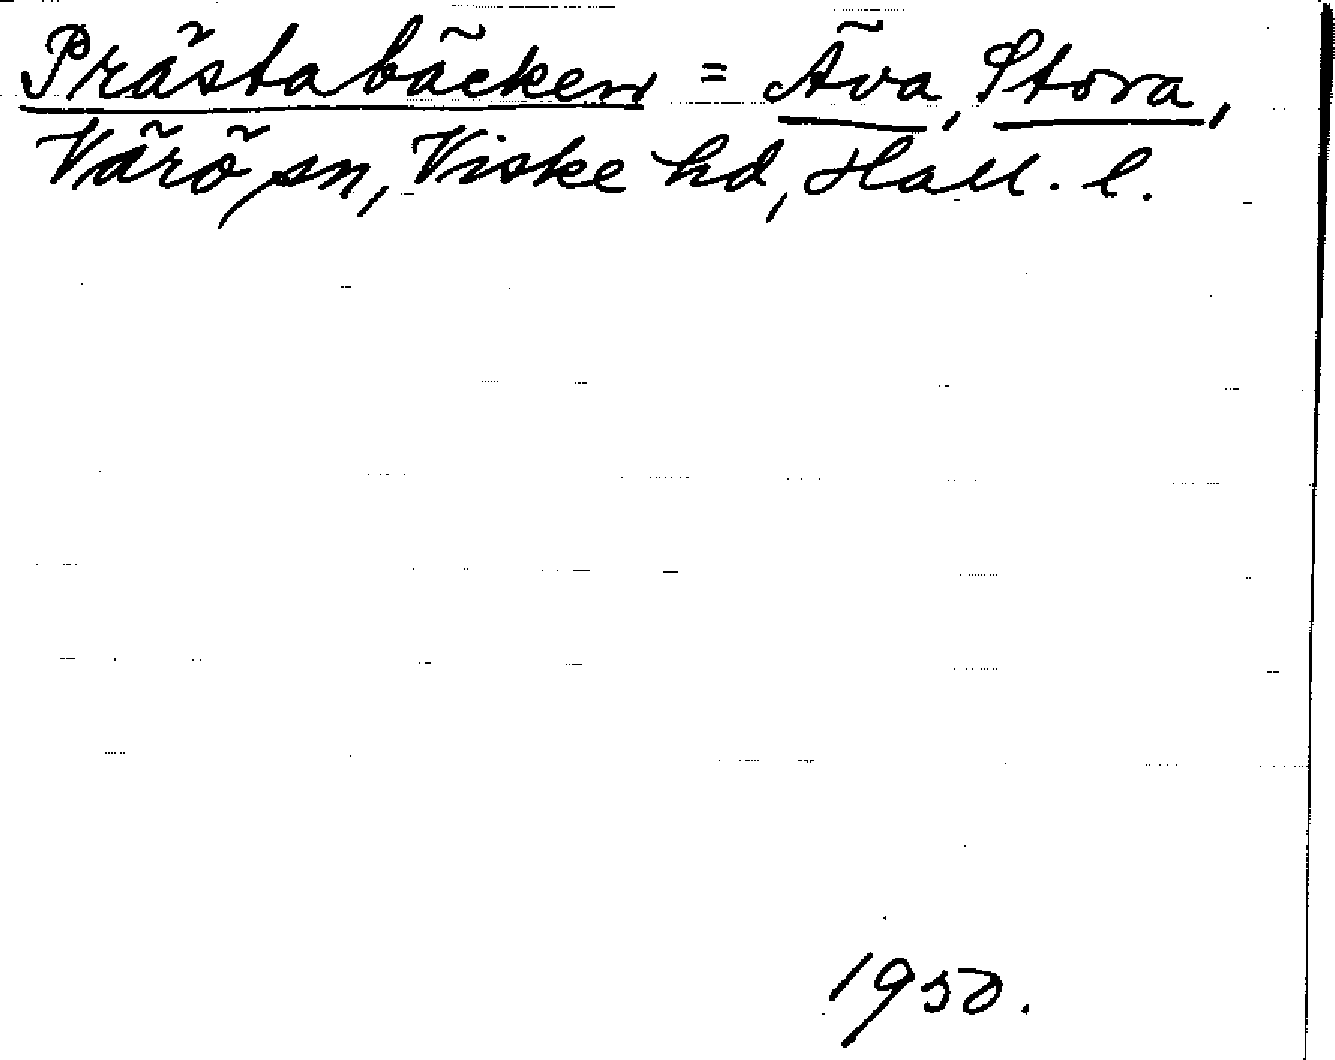 Prästabäcken = Äva, Stora,
Värö sn, Viske hd, Hall. l.
1950.